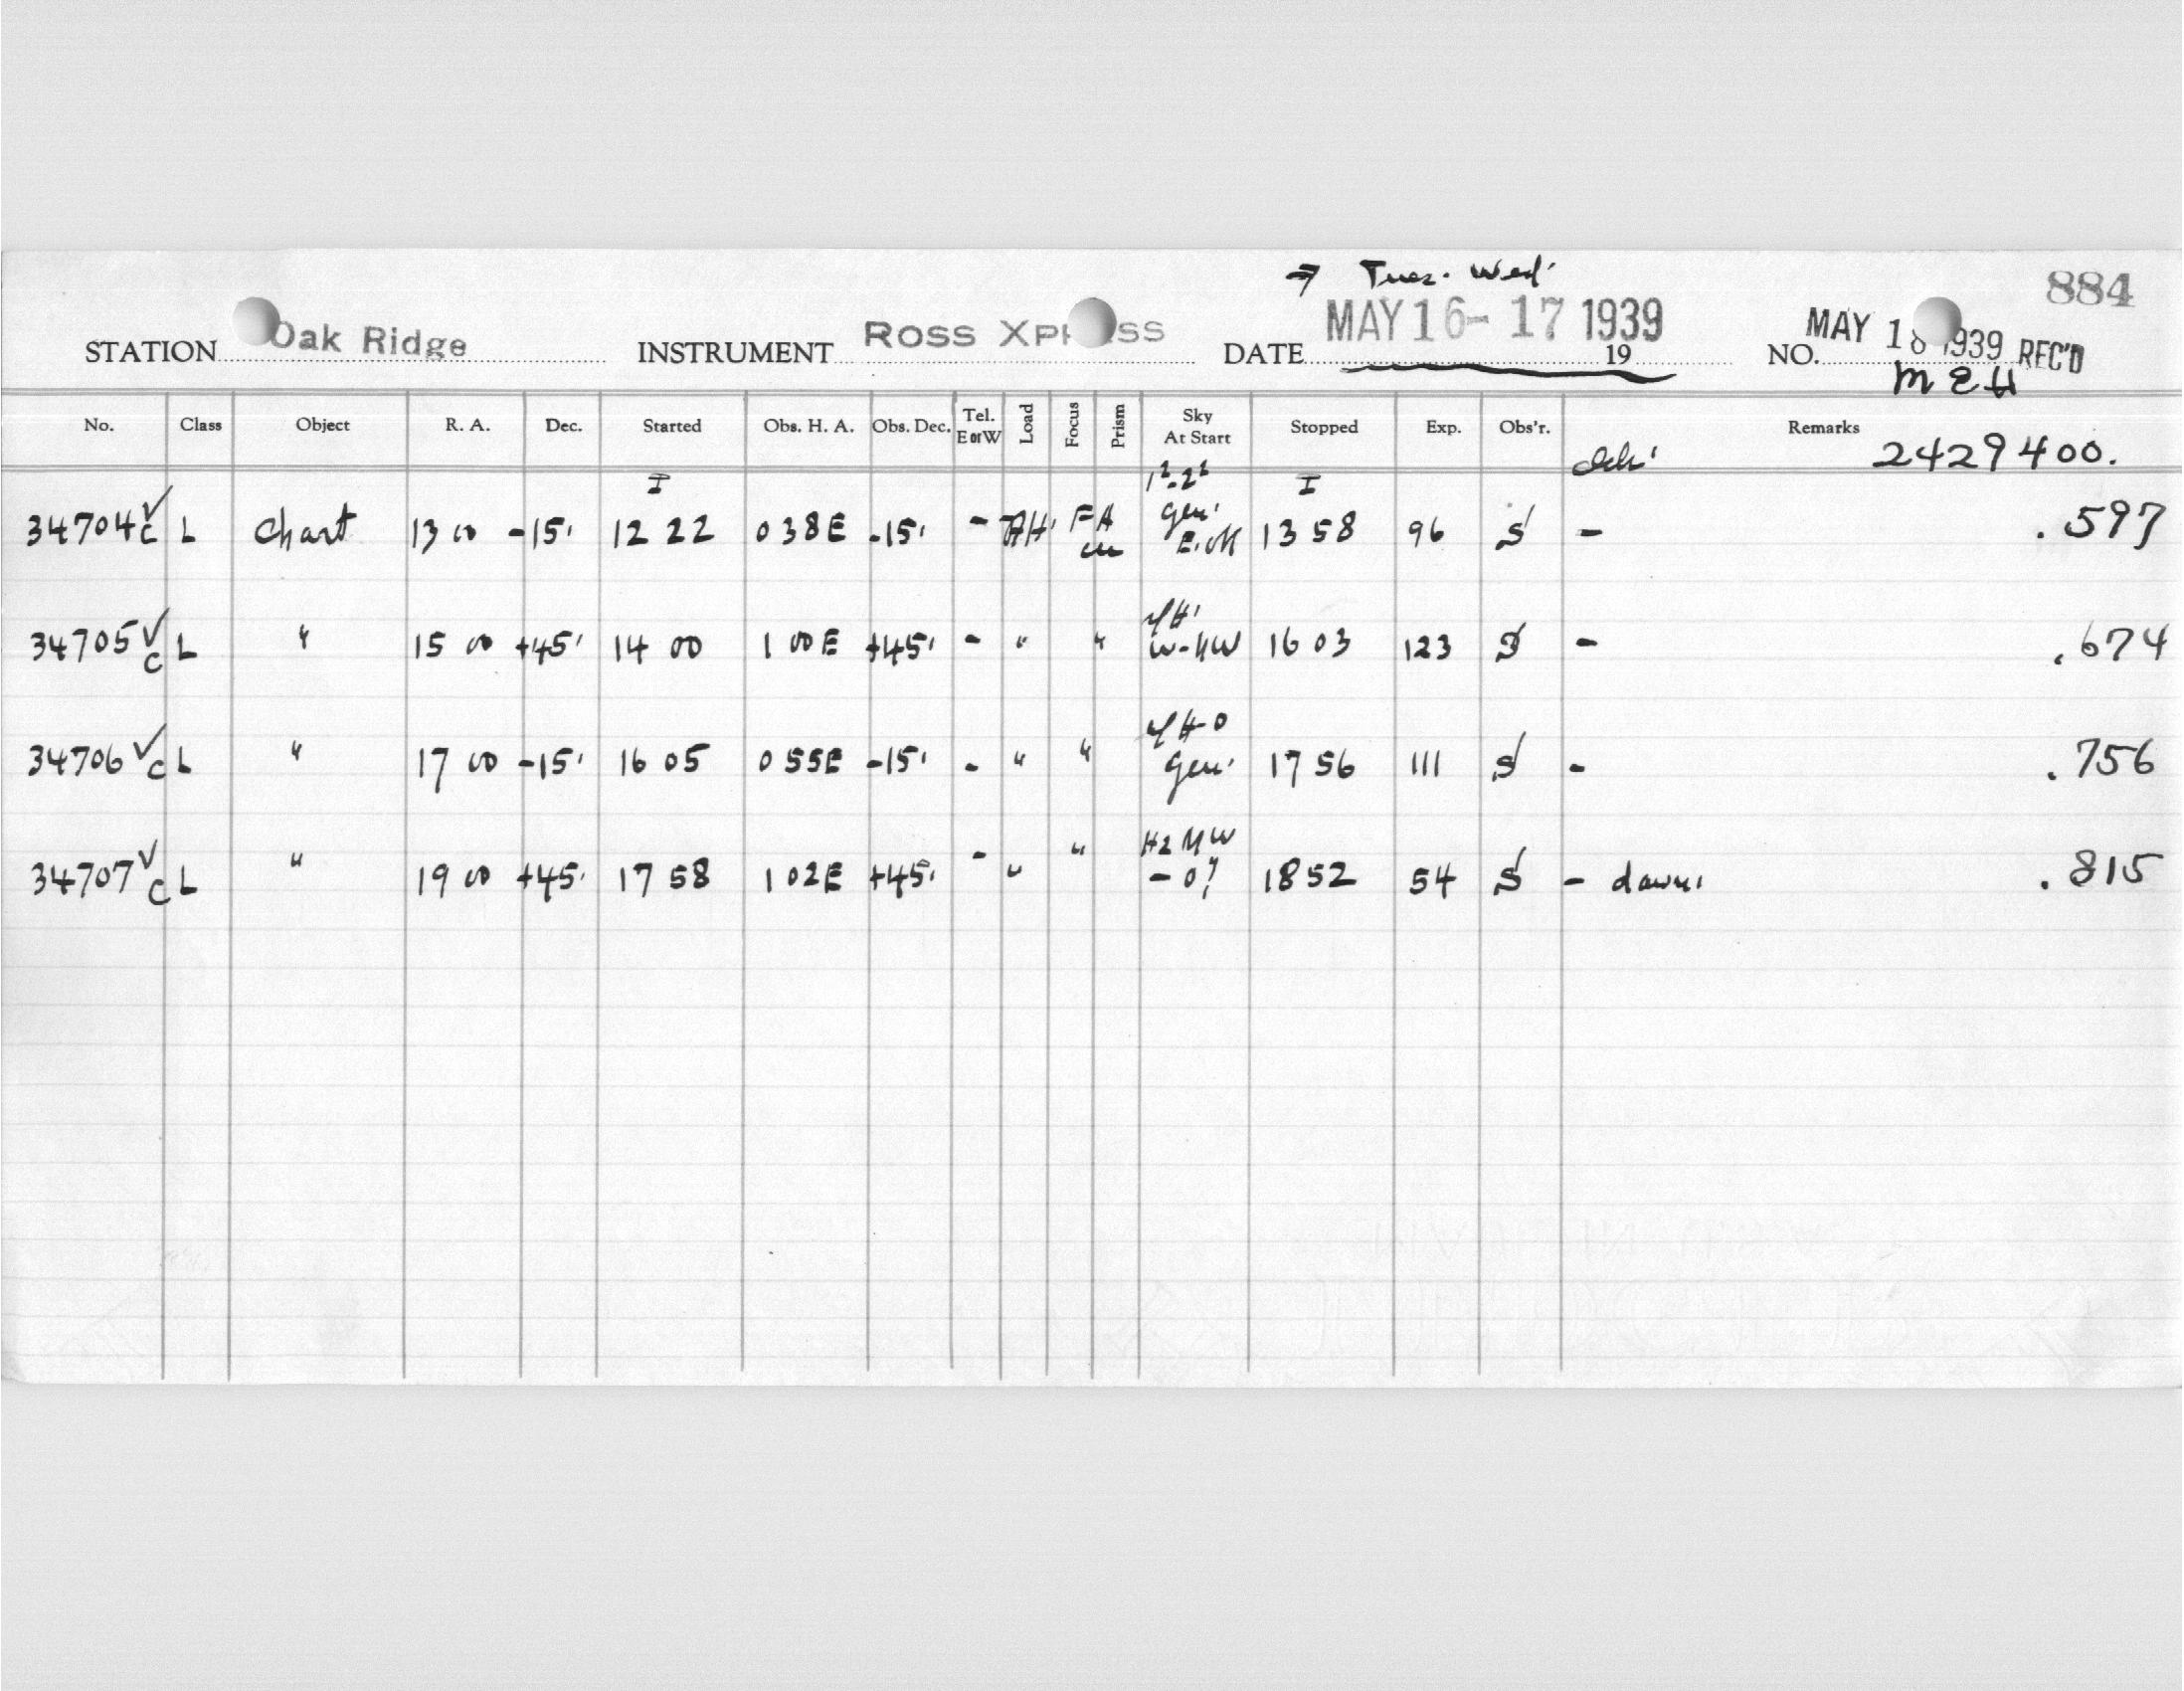 → Tues. Wed. 884
STATION Oak Ridge INSTRUMENT ROSS XPRESS DATE MAY 16-17 1939 19 NO. MAY 18 1939 REC'D
MEH
No. Class Object R. A. Dec. Started Obs. H. A. Obs. Dec. Tel. E or W Load Focus Prism Sky At Start Stopped Exp. Obs'r. Remarks 2429400.
I I
34704 ✓ c L Chart 13 00 -15. 12 22 0 38E -15. - FA gen. 13 58 96 S - .597
34705 ✓ c L " 15 00 +45. 14 00 1 00E +45. - " " 16 03 123 S - .674
34706 ✓ c L " 17 00 -15. 16 05 0 55E -15. - " " gen. 17 56 111 S - .756
34707 ✓ c L " 19 00 +45. 17 58 1 02E +45. - " " 18 52 54 S - dawn. .815